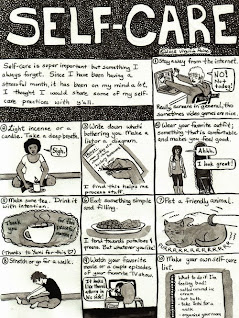 SELF-CARE
Self-care is super important but something I
always forget. Since I have been having a
stressful month, it has been on my mind a lot.
I thought I would share some of my self-
care practices with y'all.
① Stay away from the internet.
NO!
Not
today!
Really screens in general, tho
sometimes video games are nice.
② Light incense or a
candle. Take a deep breath.
Sigh.
③ Write down what's
bothering you. Make a
list or a diagram.
I find this helps me
process stuff.
④ Wear your favorite outfit;
something that's comfortable
and makes you feel good.
Ahhh.
I look great!
⑤ Make some tea. Drink it
with intention.
(Thanks to Yumi for this ♡)
⑥ Eat something simple
and filling.
I tend towards potatoes &
greens. But whatever you like.
⑦ Pet a friendly animal.
⑧ Stretch or go for a walk.
⑨ Watch your favorite
movie or a couple episodes
of your favorite TV show.
⑩ Make your own self-care
list.
What to do if I'm
feeling bad: